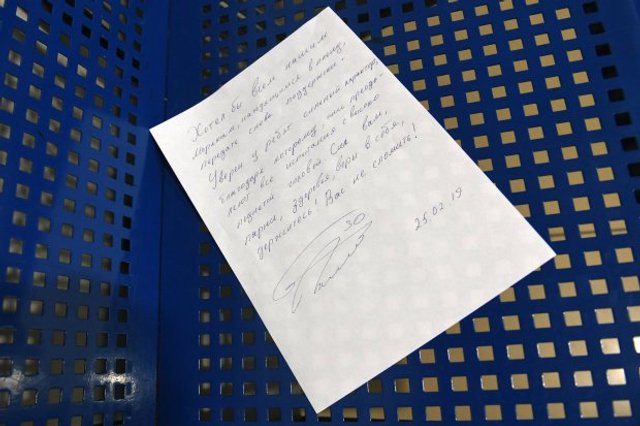 Хотел бы всем нашим
морякам, находящимся в плену,
передать слова поддержки.
Уверен у ребят сильный характер,
благодаря которому они преодо-
леют все испытания с высоко
поднятой головой. Сил вам,
парни, здоровья, веры в себя,
держитесь! Вас не сломать!
30
25.02.19